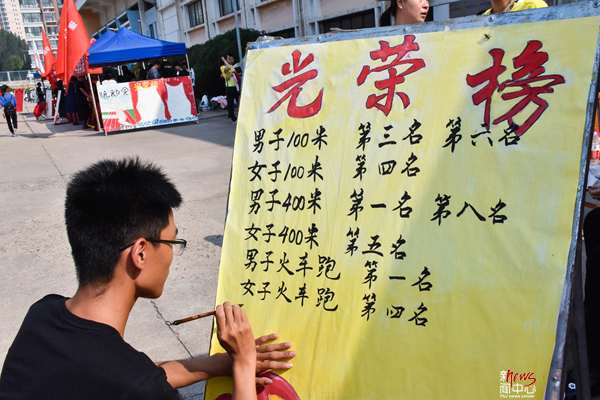 光荣榜
男子100米 第三名 第六名
女子100米 第四名
男子400米 第一名 第八名
女子400米 第五名
男子火车跑 第一名
女子火车跑 第四名
新闻中心
news